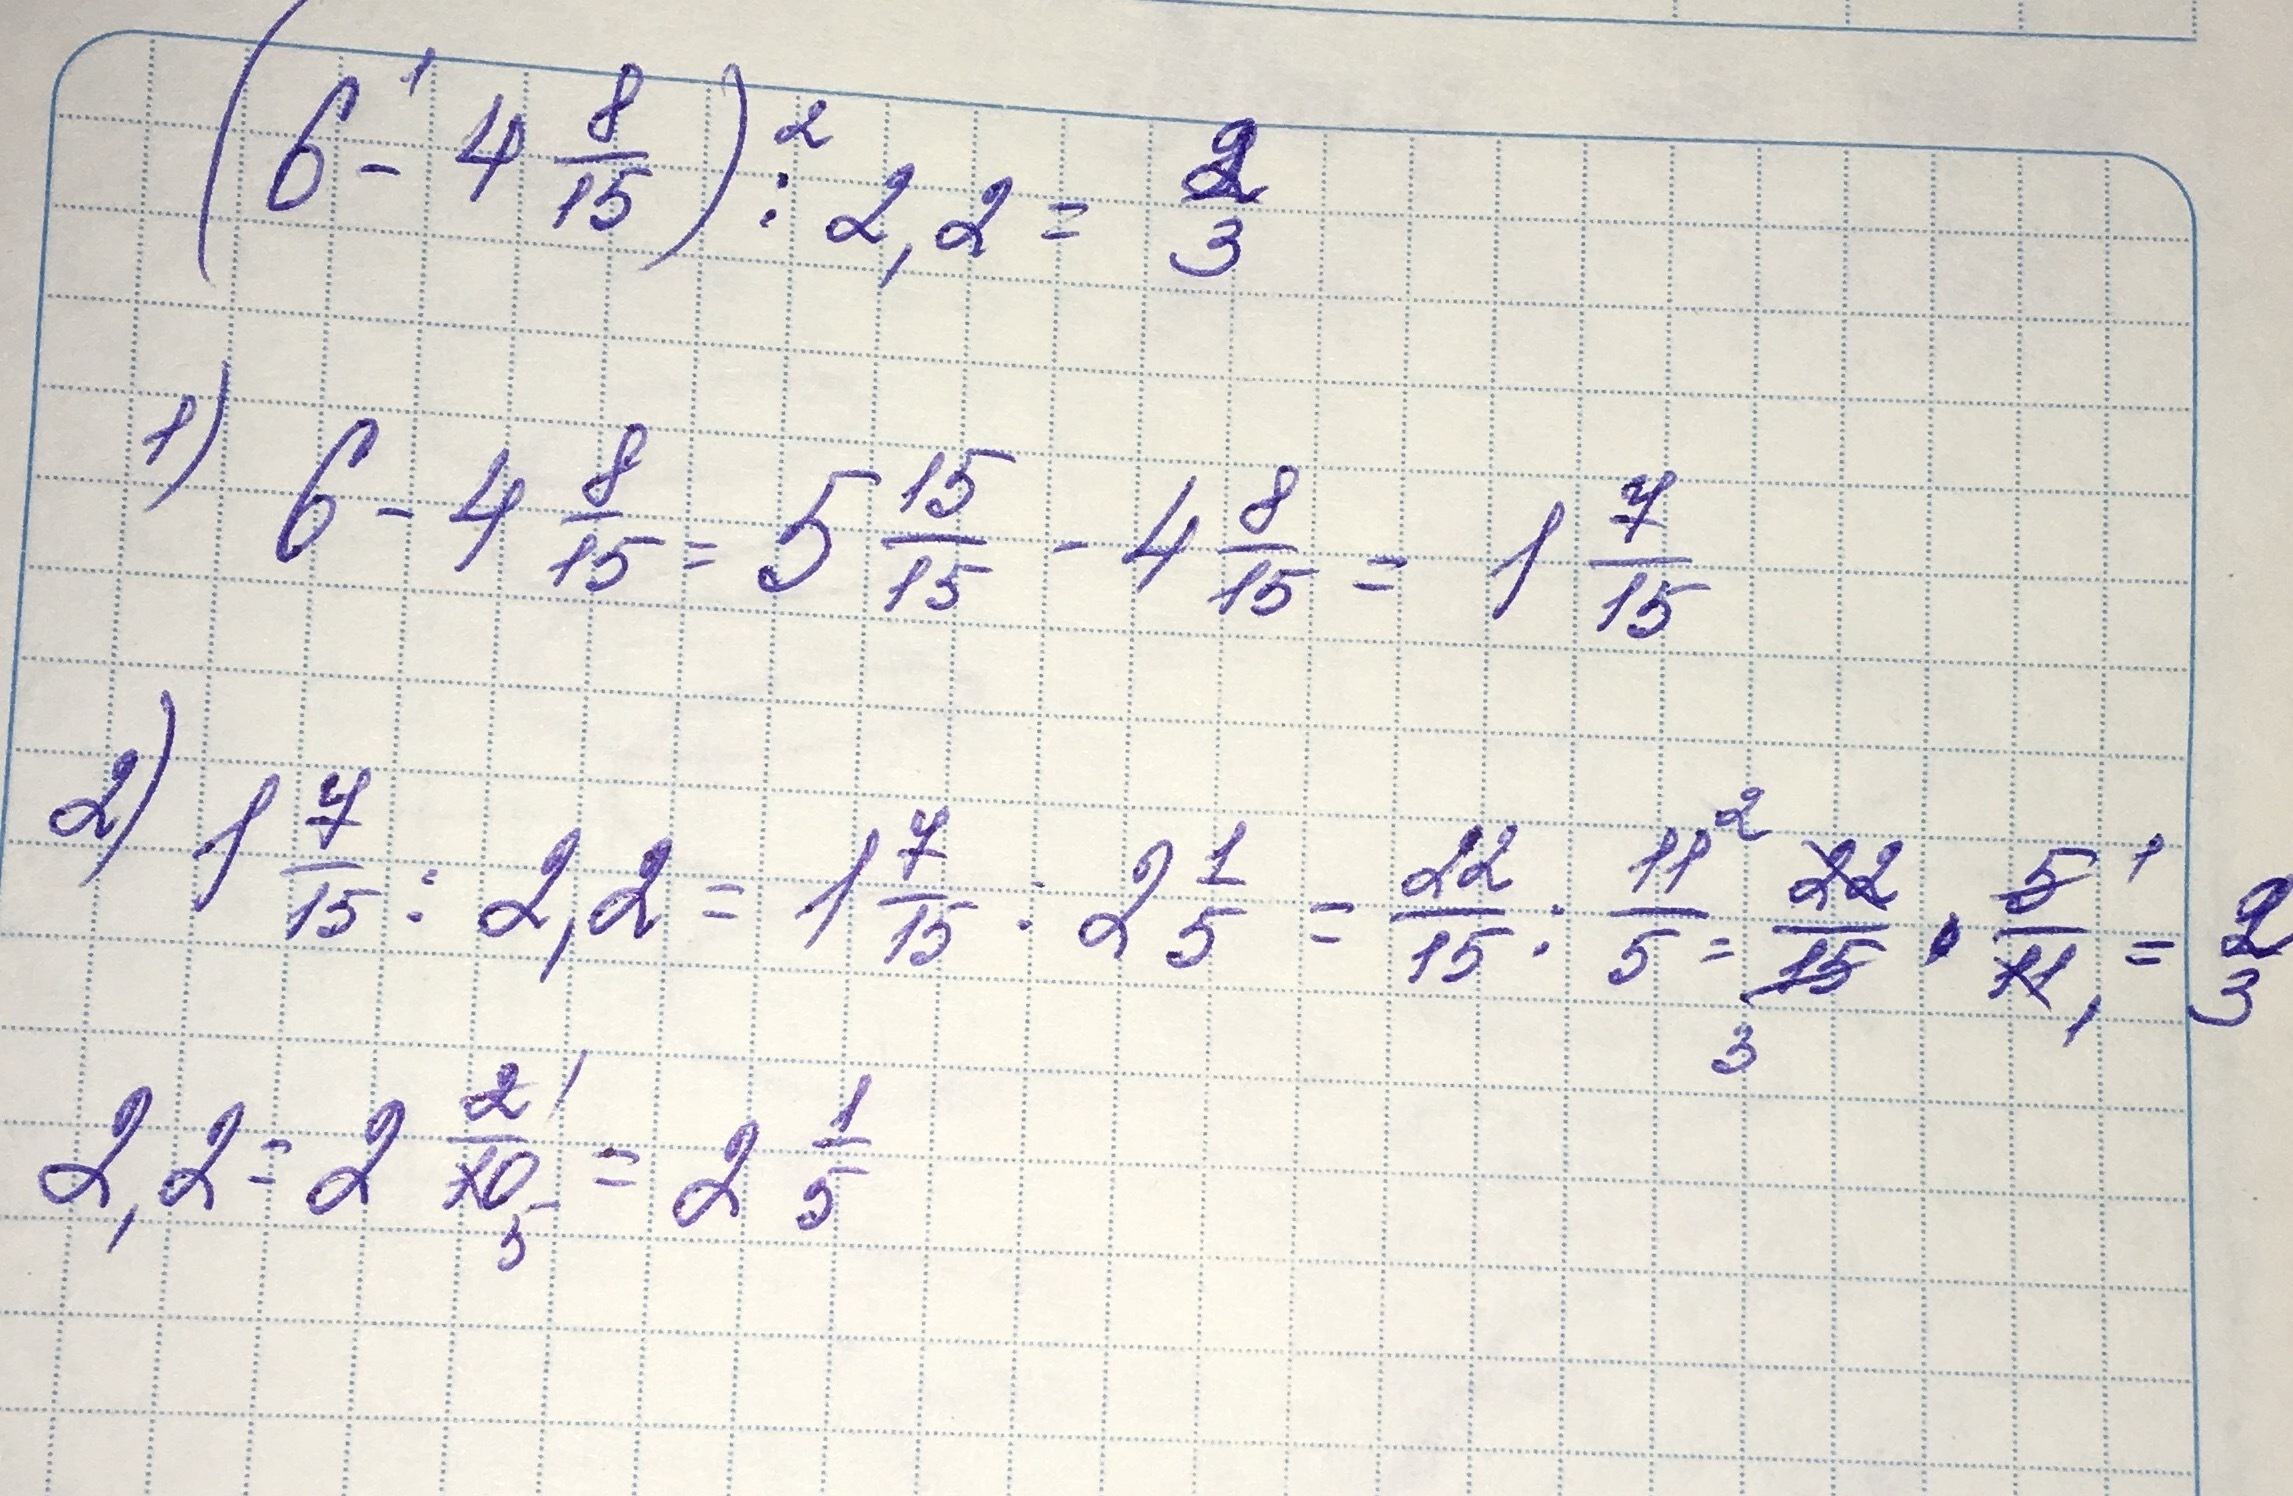 (6 - 4 8/15) : 2,2 = 2/3
1 2
1) 6 - 4 8/15 = 5 15/15 - 4 8/15 = 1 7/15
2) 1 7/15 : 2,2 = 1 7/15 : 2 1/5 = 22/15 : 11/5 = 22/15 · 5/11 = 2/3
2 1
3 1
2,2 = 2 2/10 = 2 1/5
1
5